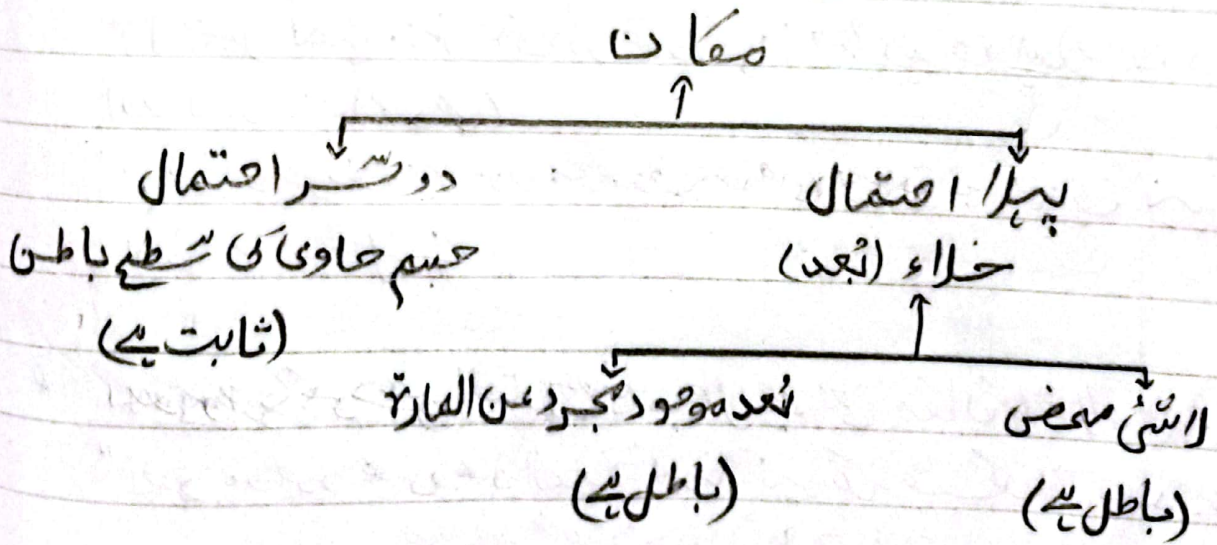 مکان
پہلا احتمال
خلاء (بُعد)
دوسرا احتمال
جسم حاوی کی سطح باطن
(ثابت ہے)
لاشیٔ محض
(باطل ہے)
بُعد موجود مجرد عن المادۃ
(باطل ہے)